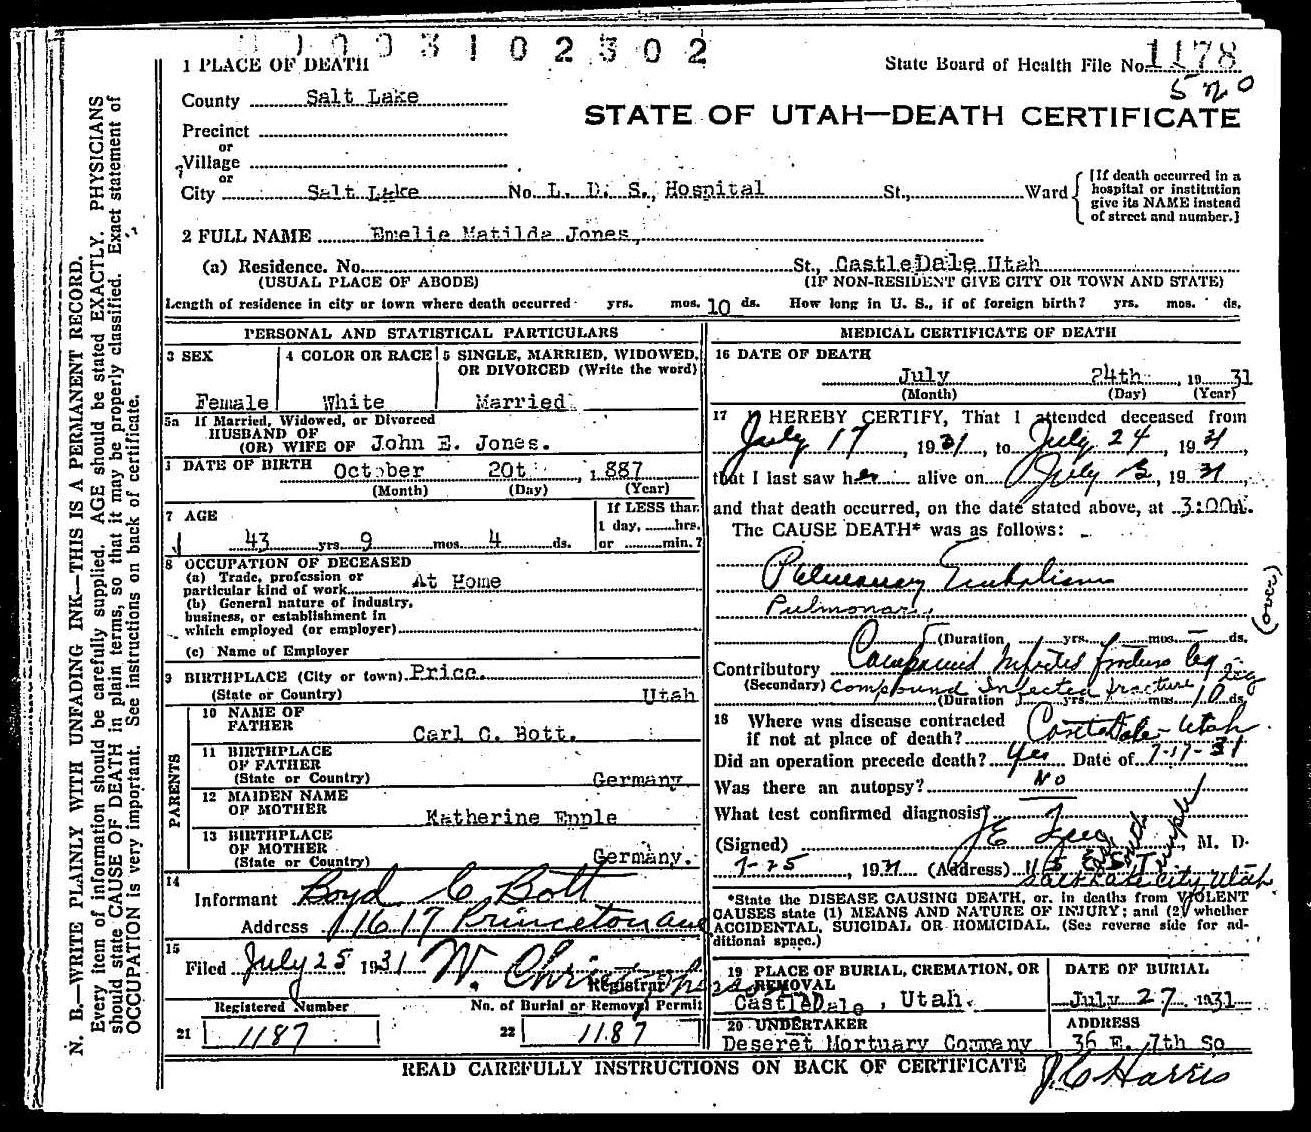 N. B.—WRITE PLAINLY WITH UNFADING INK—THIS IS A PERMANENT RECORD.
Every item of information should be carefully supplied. AGE should be stated EXACTLY. PHYSICIANS
should state CAUSE OF DEATH in plain terms, so that it may be properly classified. Exact statement of
OCCUPATION is very important. See instructions on back of certificate.
0 1 0 0 3 1 0 2 3 0 2
1 PLACE OF DEATH
State Board of Health File No. 1178
520
County Salt Lake
STATE OF UTAH—DEATH CERTIFICATE
Precinct
or
Village
or
City Salt Lake No. L. D. S. Hospital St., Ward
[If death occurred in a
hospital or institution
give its NAME instead
of street and number.]
2 FULL NAME Emelie Matilda Jones,
(a) Residence. No. St., CastleDale Utah
(USUAL PLACE OF ABODE) (IF NON-RESIDENT GIVE CITY OR TOWN AND STATE)
Length of residence in city or town where death occurred yrs. mos. 10 ds. How long in U. S., if of foreign birth? yrs. mos. ds.
PERSONAL AND STATISTICAL PARTICULARS
3 SEX
Female
4 COLOR OR RACE
White
5 SINGLE, MARRIED, WIDOWED,
OR DIVORCED (Write the word)
Married
5a If Married, Widowed, or Divorced
HUSBAND OF
(OR) WIFE OF John E. Jones.
DATE OF BIRTH October 20t 1887
(Month) (Day) (Year)
7 AGE
43 yrs 9 mos 4 ds.
If LESS than
1 day, hrs.
or min.?
8 OCCUPATION OF DECEASED
(a) Trade, profession or
particular kind of work At Home
(b) General nature of industry,
business, or establishment in
which employed (or employer)
(c) Name of Employer
9 BIRTHPLACE (City or town) Price.
(State or Country) Utah
PARENTS
10 NAME OF
FATHER Carl C. Bott.
11 BIRTHPLACE
OF FATHER
(State or Country) Germany
12 MAIDEN NAME
OF MOTHER Katherine Epple
13 BIRTHPLACE
OF MOTHER
(State or Country) Germany.
14
Informant Boyd C Bott
Address 1617 Princeton ave
15
Filed July 25 1931 W. Christopherson
Registrar
Registered Number
21 1187
No. of Burial or Removal Permit
22 1187
MEDICAL CERTIFICATE OF DEATH
16 DATE OF DEATH
July 24th 1931
(Month) (Day) (Year)
17 I HEREBY CERTIFY, That I attended deceased from
July 17, 1931, to July 24, 1931
that I last saw her alive on July 1931,
and that death occurred, on the date stated above, at 3:00A.
The CAUSE DEATH* was as follows:
Pulmonary Embolism
Pulmonary
(over)
(Duration yrs. mos. ds.
Contributory Compound Infected fracture leg
(Secondary) Compound Infected fracture leg
(Duration yrs. mos. 10 ds.
18 Where was disease contracted
if not at place of death? Castle Dale Utah
Did an operation precede death? Yes Date of 7-17-31
Was there an autopsy? No
What test confirmed diagnosis?
(Signed) J E M. D.
7-25, 1931 (Address) 115 East South Temple
Salt Lake City Utah
*State the DISEASE CAUSING DEATH, or, in deaths from VIOLENT
CAUSES state (1) MEANS AND NATURE OF INJURY; and (2) whether
ACCIDENTAL, SUICIDAL OR HOMICIDAL. (See reverse side for ad-
ditional space.)
19 PLACE OF BURIAL, CREMATION, OR
REMOVAL
CastleDale, Utah.
DATE OF BURIAL
July 27 1931
20 UNDERTAKER
Deseret Mortuary Company
ADDRESS
36 E. 7th So
READ CAREFULLY INSTRUCTIONS ON BACK OF CERTIFICATE
J C Harris